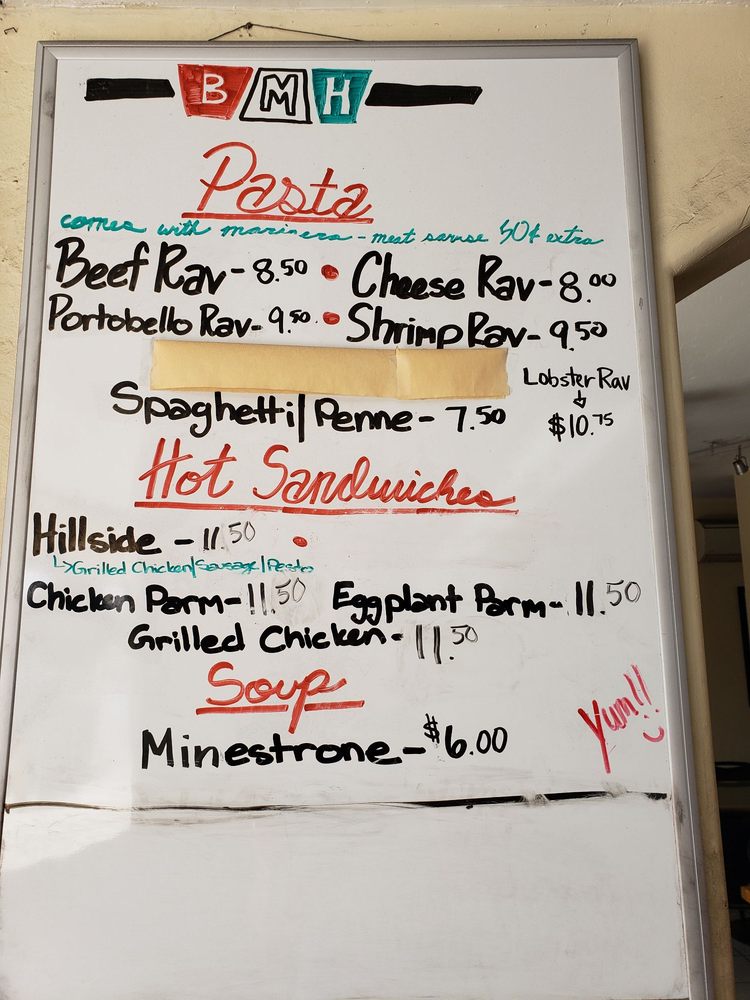 BMH
Pasta
comes with marinera - meat sause 50¢ extra
Beef Rav - 8.50 • Cheese Rav - 8.00
Portobello Rav - 9.50 • Shrimp Rav - 9.50
Lobster Rav
↓
$10.75
Spaghetti/Penne - 7.50
Hot Sandwiches
Hillside - 11.50 •
↳Grilled Chicken/Sausage/Pesto
Chicken Parm - 11.50 Eggplant Parm - 11.50
Grilled Chicken - 11.50
Soup
Minestrone - $6.00
Yum!!